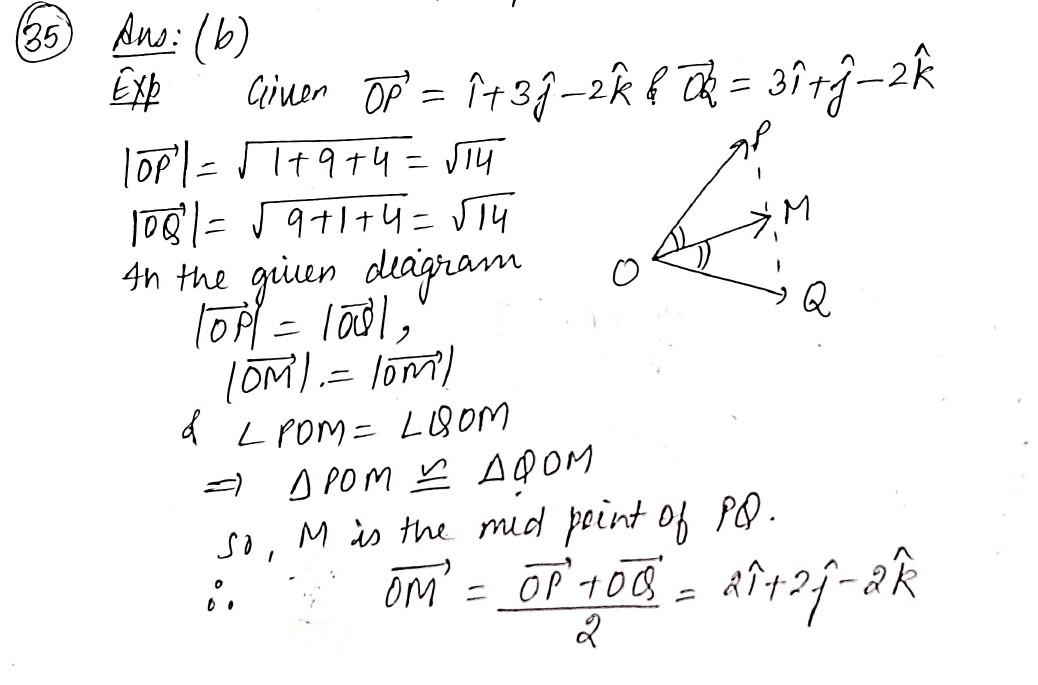 35 Ans: (b)
Exp Given $\overrightarrow{OP} = \hat{i}+3\hat{j}-2\hat{k}$ & $\overrightarrow{OQ} = 3\hat{i}+\hat{j}-2\hat{k}$
$|\overrightarrow{OP}| = \sqrt{1+9+4} = \sqrt{14}$
$|\overrightarrow{OQ}| = \sqrt{9+1+4} = \sqrt{14}$
In the given diagram
$|\overrightarrow{OP}| = |\overrightarrow{OQ}|$,
$|\overrightarrow{OM}| = |\overrightarrow{OM}|$
& ∠POM = ∠QOM
⇒ ΔPOM ≌ ΔQOM
So, M is the mid point of PQ.
∴ $\overrightarrow{OM} = \frac{\overrightarrow{OP}+\overrightarrow{OQ}}{2} = 2\hat{i}+2\hat{j}-2\hat{k}$
P
M
O
Q